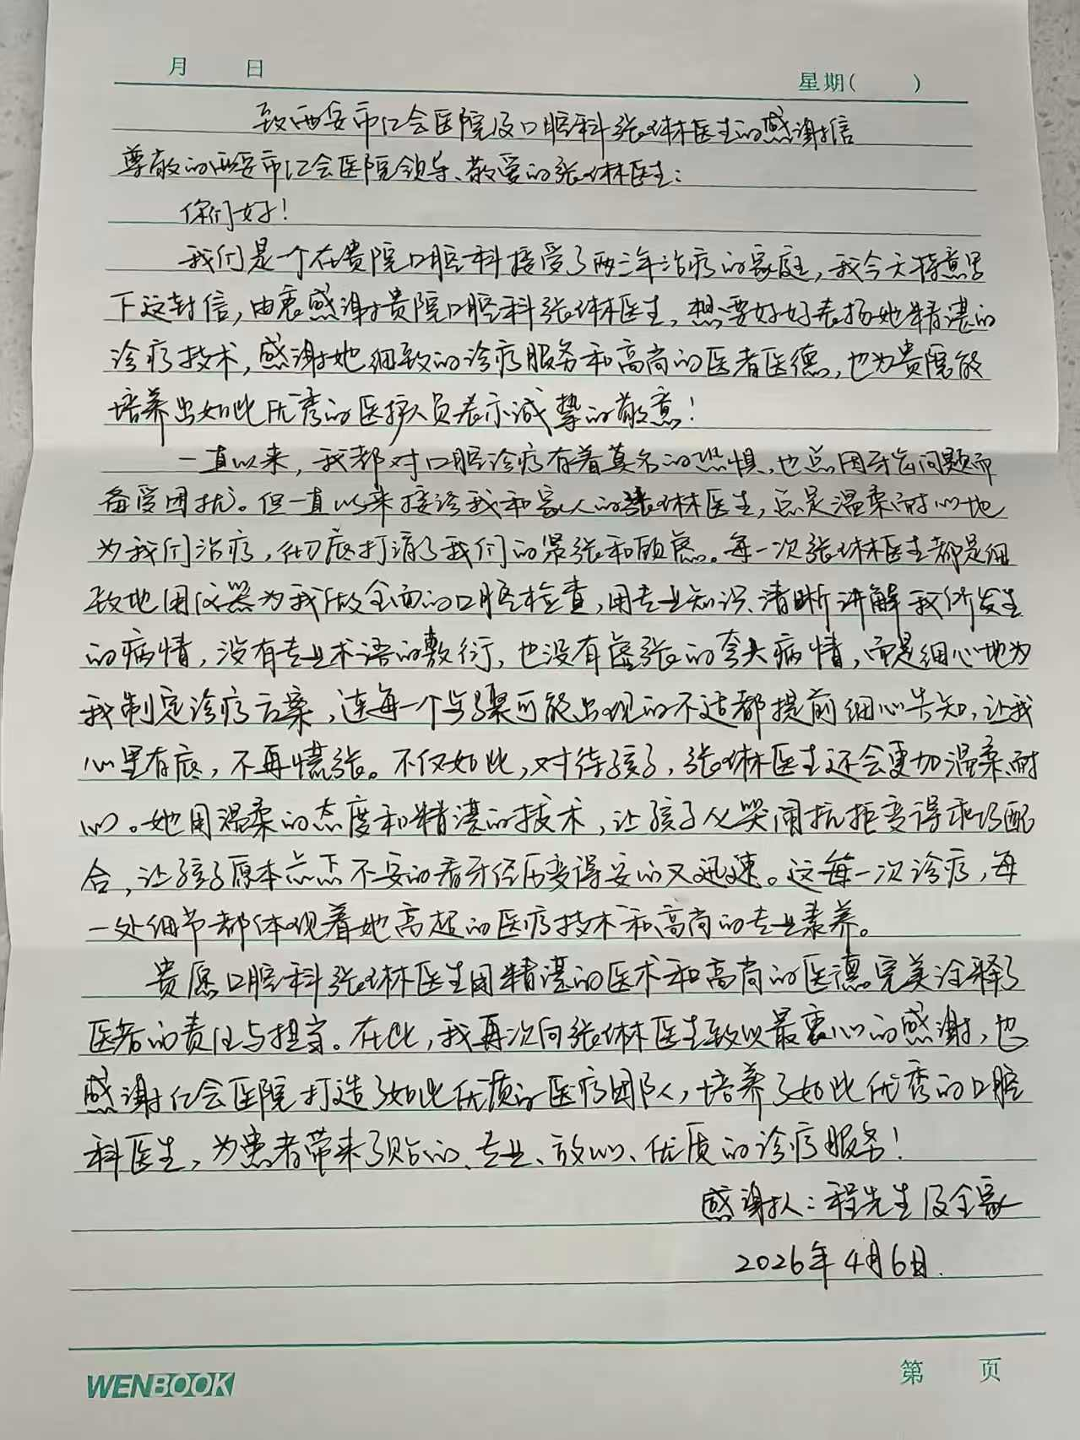 月 日
星期( )
致西安市仁会医院及口腔科张琳医生的感谢信
尊敬的西安市仁会医院领导、敬爱的张琳医生:
你们好!
我们是一个在贵院口腔科接受了两三年治疗的家庭,我今天特意写
下这封信,由衷感谢贵院口腔科张琳医生,想要好好表扬她精湛的
诊疗技术,感谢她细致的诊疗服务和高尚的医者医德,也为贵院能
培养出如此优秀的医护人员表示诚挚的敬意!
一直以来,我都对口腔诊疗有着莫名的恐惧,也总因牙齿问题而
备受困扰。但一直以来接诊我和家人的张琳医生,总是温柔耐心地
为我们治疗,彻底打消了我们的紧张和顾虑。每一次张琳医生都是细
致地用仪器为我做全面的口腔检查,用专业知识、清晰讲解我所发生
的病情,没有专业术语的敷衍,也没有虚张的夸大病情,而是细心地为
我制定诊疗方案,连每一个步骤可能出现的不适都提前细心告知,让我
心里有底,不再慌张。不仅如此,对待孩子,张琳医生还会更加温柔耐
心。她用温柔的态度和精湛的技术,让孩子从哭闹抗拒变得乖巧配
合,让孩子原本忐忑不安的看牙经历变得安心又迅速。这每一次诊疗,每
一处细节都体现着她高超的医疗技术和高尚的专业素养。
贵院口腔科张琳医生用精湛的医术和高尚的医德完美诠释了
医者的责任与担当。在此,我再次向张琳医生致以最衷心的感谢,也
感谢仁会医院打造了如此优质的医疗团队,培养了如此优秀的口腔
科医生,为患者带来了贴心、专业、放心、优质的诊疗服务!
感谢人:程先生及全家
2026年4月6日.
WENBOOK
第 页